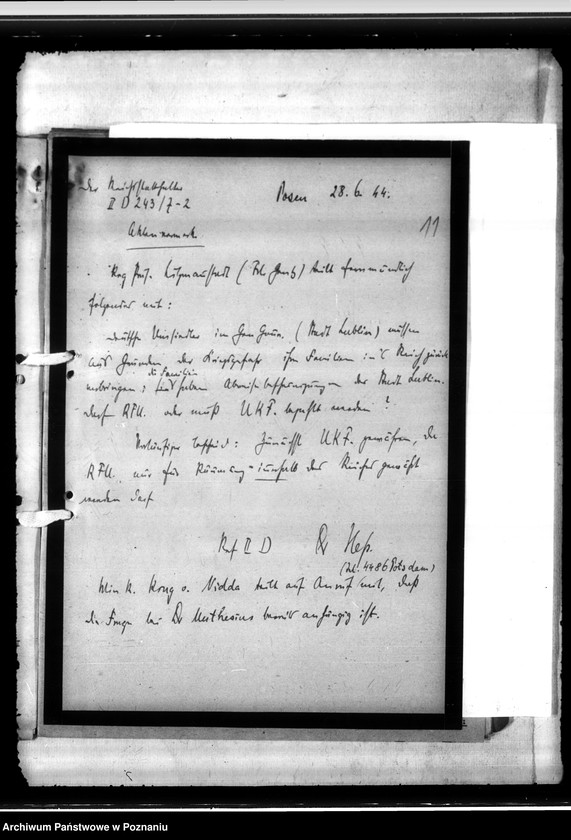 Der Reichsstatthalter
II D 243/7-2
Posen 28.6.44.
11
Aktenvermerk
Reg Präs. Litzmannstadt ( ) teilt fernmündlich
folgendes mit:
deutsche Umsiedler im Gen Gouv. (Stadt Lublin) müssen
aus Gründen der Kriegsgefahr ihre Familien ins Reich zurück
die Familien
verbringen; haben Abreisebescheinigungen der Stadt Lublin.
darf RFU. oder muß UKF. bezahlt werden?
Vorläufiger Bescheid: Zunächst UKF. gewähren, da
RFU. nur für Räumung innerhalb des Reiches gewährt
werden darf
Ref II D Dr Hep.
(Tel. 4486 Potsdam)
Min R. Krug v. Nidda teilt auf Anruf mit, daß
die Frage bei Dr Muthesius bereits anhängig ist.
Archiwum Państwowe w Poznaniu